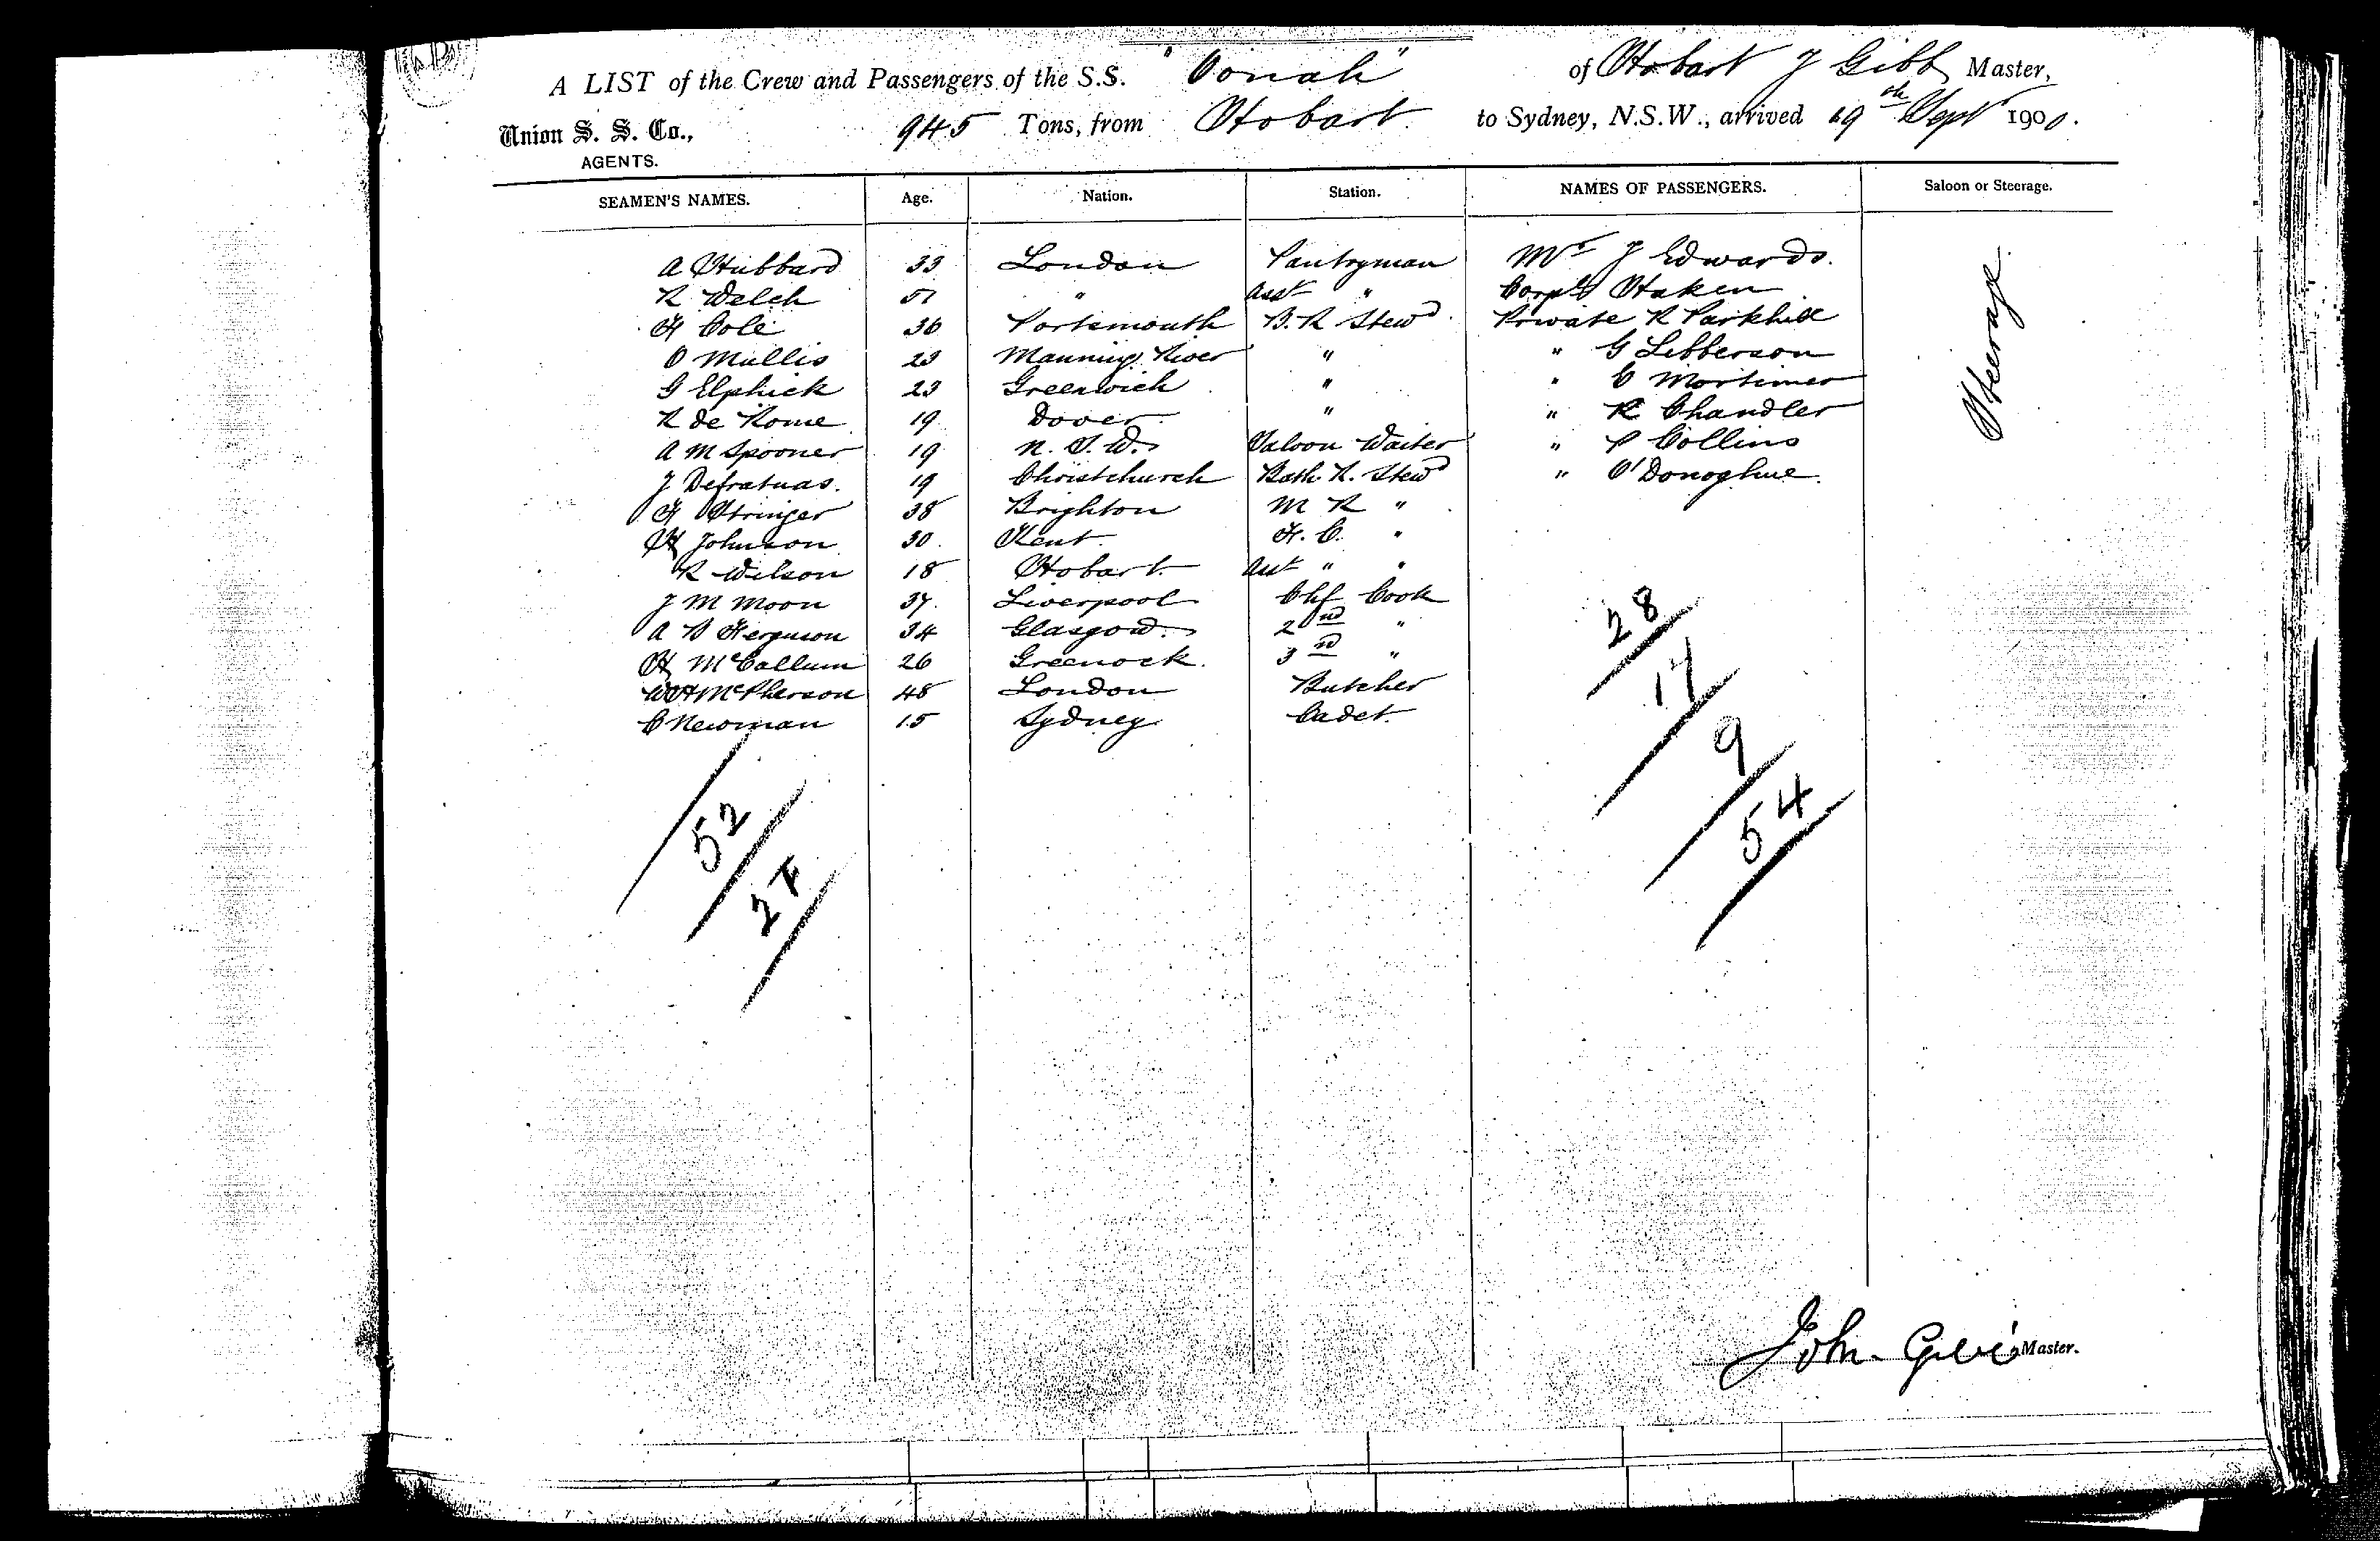 A LIST of the Crew and Passengers of the S.S. "Oonah" of Hobart J Gibb Master,
Union S. S. Co., 945 Tons, from Hobart to Sydney, N.S.W., arrived 19th Sept 1900.
AGENTS.
SEAMEN'S NAMES. Age. Nation. Station. NAMES OF PASSENGERS. Saloon or Steerage.
A Hubbard 33 London Pantryman Mr J Edwards. Steerage
R Welch 51 " Asst " Corpl Haken
F Cole 36 Portsmouth B.R Stewd Private R Parkhill
O Mullis 23 Manning River " " G Libberson
G Elphick 23 Greenwich " " C Mortimer
R de Rome 19 Dover " " R Chandler
A M Spooner 19 N.S.W. Saloon Waiter " P Collins
J Defratuas. 19 Christchurch Bath. R. Stewd " O'Donoghue.
F Stringer 38 Brighton M R "
H Johnson 30. Kent. F. C. "
R Wilson 18 Hobart. Asst " "
J M Moon 37. Liverpool Chf Cook
A B Ferguson 34 Glasgow. 2nd "
H McCallum 26 Greenock. 3rd "
W H McPherson 48 London Butcher
C Newman 15 Sydney Cadet.
28
17
9
54
52
27
John Gibb Master.